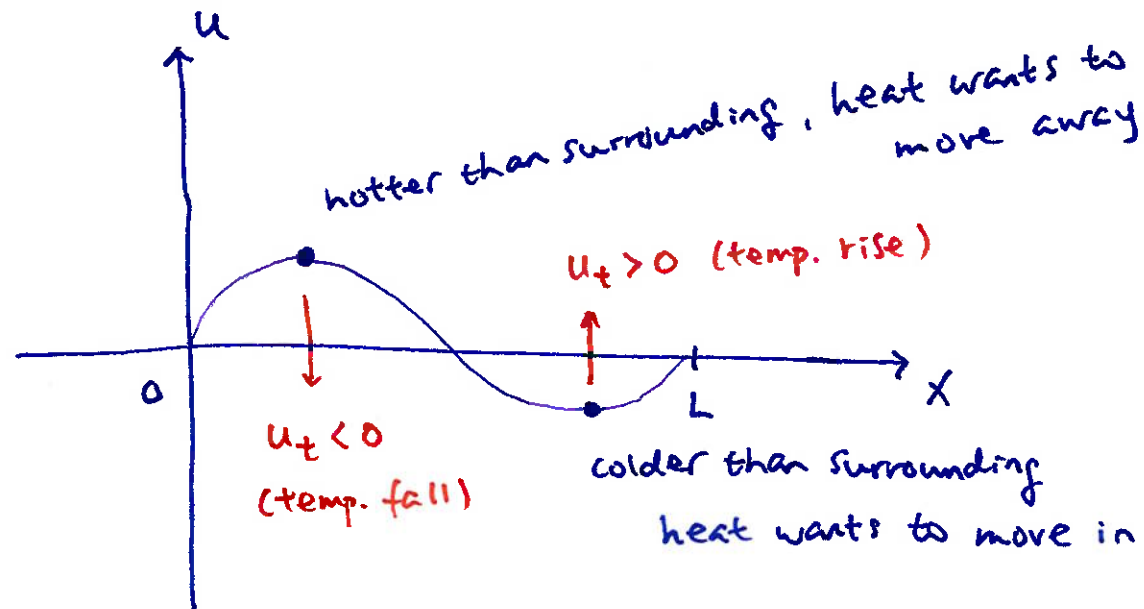 u
hotter than surrounding, heat wants to
move away
u_t > 0 (temp. rise)
0
L
X
u_t < 0
(temp. fall)
colder than surrounding
heat wants to move in